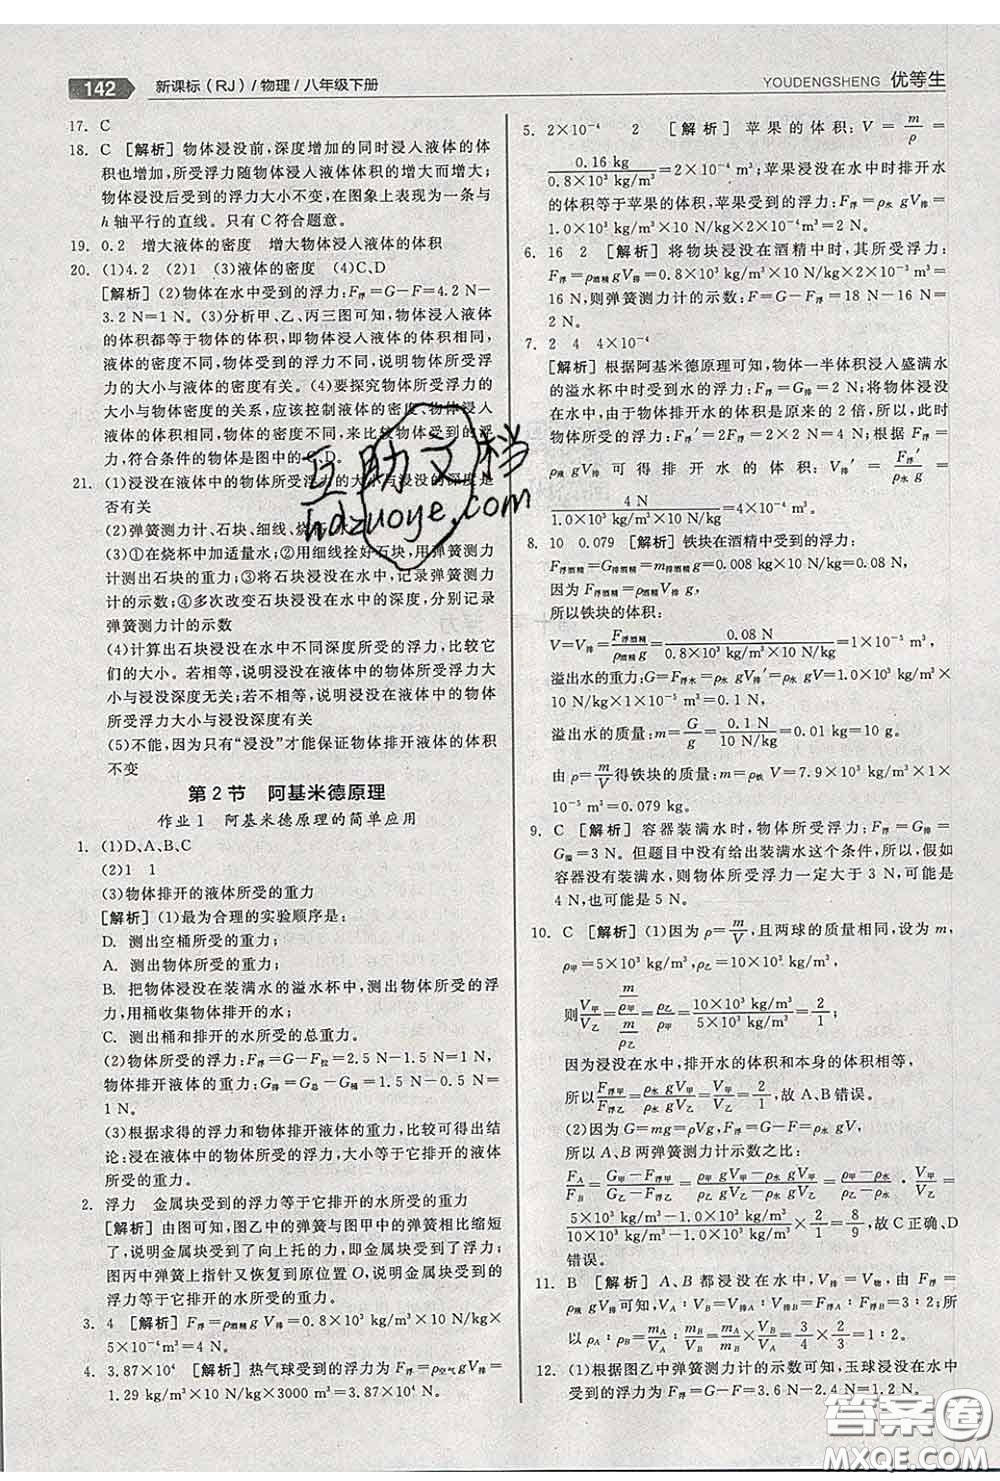 142 新课标(RJ)/物理/八年级下册
YOUDENGSHENG 优等生
17. C
18. C [解析] 物体浸没前,深度增加的同时浸入液体的体
积也增加,所受浮力随物体浸入液体体积的增大而增大;
物体浸没后受到的浮力大小不变,在图象上表现为一条与
h 轴平行的直线。只有 C 符合题意。
19. 0.2 增大液体的密度 增大物体浸入液体的体积
20. (1)4.2 (2)1 (3)液体的密度 (4)C、D
[解析] (2)物体在水中受到的浮力:F浮=G-F=4.2 N-
3.2 N=1 N。(3)分析甲、乙、丙三图可知,物体浸入液体
的体积都等于物体的体积,即物体浸入液体的体积相同,
液体的密度不同,物体受到的浮力不同,说明物体所受浮
力的大小与液体的密度有关。(4)要探究物体所受浮力的
大小与物体密度的关系,应该控制液体的密度、物体浸入
液体的体积相同,物体的密度不同,来比较物体受到的浮
力,符合条件的物体是图中的 C、D。
21. (1)浸没在液体中的物体所受浮力的大小与浸没的深度是
否有关
(2)弹簧测力计、石块、细线、烧杯、水
(3)①在烧杯中加适量水;②用细线拴好石块,用弹簧测力
计测出石块的重力;③将石块浸没在水中,记录弹簧测力
计的示数;④多次改变石块浸没在水中的深度,分别记录
弹簧测力计的示数
(4)计算出石块每次浸没在水中不同深度所受的浮力大
小,进行比较。若相等,说明浸没在液体中的物体所受浮
力大小与浸没深度无关;若不相等,说明浸没在液体中的物体
所受浮力大小与浸没深度有关
(5)不能,因为只有“浸没”才能保证物体排开液体的体积
不变
第2节 阿基米德原理
作业1 阿基米德原理的简单应用
1. (1)D、A、B、C
(2)1 1
(3)物体排开的液体所受的重力
[解析] (1)最为合理的实验顺序是:
D. 测出空桶所受的重力;
A. 测出物体所受的重力;
B. 把物体浸没在装满水的溢水杯中,测出物体所受的浮
力,用桶收集物体排开的水;
C. 测出桶和排开的水所受的总重力。
(2)物体所受的浮力:F浮=G-F拉=2.5 N-1.5 N=1 N,
物体排开液体的重力:G排=G总-G桶=1.5 N-0.5 N=
1 N。
(3)根据求得的浮力和物体排开液体的重力,比较可得出
结论:浸在液体中的物体所受的浮力大小等于物体排开的
液体所受的重力。
2. 浮力 金属块受到的浮力等于它排开的水所受的重力
[解析] 由图可知,图乙中的弹簧与图甲中的弹簧相比缩短
了,说明金属块受到了向上托的力,即金属块受到了浮力;
图丙中弹簧上指针又恢复到原位置 O,说明金属块受到的
浮力等于它排开的水所受的重力。
3. 4 [解析] 铁块受到的浮力:F浮=ρ水gV排=1.0×10³ kg/m³×10 N/kg
×5×10⁻⁴m³=4 N。
4. 3.87×10⁴ [解析] 热气球受到的浮力为 F浮=ρ空气gV排=
1.29 kg/m³×10 N/kg×3000 m³=3.87×10⁴ N。
5. 2×10⁻⁴ 2 [解析] 苹果的体积:V=m/ρ=
0.16 kg/0.8×10³ kg/m³=2×10⁻⁴ m³;苹果浸没在水中时排开水
的体积等于苹果的体积,苹果受到的浮力:F浮=ρ水gV排=
1.0×10³ kg/m³×10 N/kg×2×10⁻⁴ m³=2 N。
6. 16 2 [解析] 将物块浸没在酒精中时,其所受浮力:
F浮=ρ酒精gV排=0.8×10³ kg/m³×10 N/kg×2×10⁻³ m³=
16 N,则弹簧测力计的示数:F=G-F浮=18 N-16 N=
2 N。
7. 2 4 4×10⁻⁴
[解析] 根据阿基米德原理可知,物体一半体积浸入盛满水
的溢水杯中时受到水的浮力:F浮=G排=2 N;将物体浸没
在水中,由于物体排开水的体积是原来的 2 倍,所以,此时
物体所受的浮力:F浮′=2F浮=2×2 N=4 N。根据 F浮=
ρ液gV排 可得排开水的体积:V排′=F浮′/ρ水g=
4 N/1.0×10³ kg/m³×10 N/kg=4×10⁻⁴m³。
8. 10 0.079 [解析] 铁块在酒精中所受到的浮力:
F浮酒精=G排酒精=m排酒精g=0.008 kg×10 N/kg=0.08 N,
所以铁块的体积:
V=V排=F浮酒精/ρ酒精g=0.08 N/0.8×10³ kg/m³×10 N/kg=1×10⁻⁵m³,
溢出水的重力:G=F浮水=ρ水gV排′=ρ水gV=1.0×10³ kg/
m³×10 N/kg×1×10⁻⁵m³=0.1 N,
溢出水的质量:m=G/g=0.1 N/10 N/kg=0.01 kg=10 g。
由 ρ=m/V得铁块的质量:m=ρ铁V=7.9×10³ kg/m³×1×
10⁻⁵ m³=0.079 kg。
9. C [解析] 容器装满水时,物体所受的浮力:F浮=G排=
G溢=3 N。但题目中没有给出装满水这个条件,所以,假如
容器没有装满水,则物体所受浮力一定大于 3 N,可能是
4 N,也可能是 5 N。
10. C [解析] (1)因为 ρ=m/V,且两球的质量相同,设为 m,
ρ甲=5×10³ kg/m³,ρ乙=10×10³ kg/m³,
则V甲/V乙=m/ρ甲/m/ρ乙=ρ乙/ρ甲=10×10³ kg/m³/5×10³ kg/m³=2/1;
因为浸没在水中,排开水的体积和本身的体积相等,
所以F浮甲/F浮乙=ρ水gV甲/ρ水gV乙=V甲/V乙=2/1,故 A、B 错误。
(2)因为 G=mg=ρVg,F浮=G-F=ρ水gV排,
所以 A、B 两弹簧测力计示数之比:
F甲/F乙=G甲-F浮甲/G乙-F浮乙=ρ甲gV甲-ρ水gV甲/ρ乙gV乙-ρ水gV乙=ρ甲-ρ水/ρ乙-ρ水·V甲/V乙=
5×10³ kg/m³-1.0×10³ kg/m³/10×10³ kg/m³-1.0×10³ kg/m³×2/1=8/9,故 C 正确、D
错误。
11. B [解析] A、B 都浸没在水中,V排=V物,由 F浮=
ρ水gV排可知,VA∶VB=V排A∶V排B=F浮A∶F浮B=4∶3,所
以 ρA∶ρB=mA/VA∶mB/VB=mA/mB×VB/VA=2/1×3/4=3/2。
12. (1)根据图乙中弹簧测力计的示数可知,玉球浸没在水中
受到的浮力:F浮=G-F=3.6 N-2.4 N=1.2 N。
互助文档
hdzuoye.com
答案圈
MXQE.COM